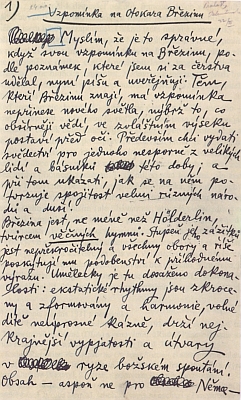 1)
Vzpomínka na Otokara Březinu
Myslím, že je to správné,
když svou vzpomínku na Březinu, po-
dle poznámek, které jsem si za čerstva
udělal, nyní píšu a uveřejňuji. Těm,
kteří Březinu znají, má vzpomínka
nepřinese nového světla, nýbrž to, co
obšírněji vědí, ve zvláštním výseku
postaví před oči. Především chci vydati
svědectví pro jednoho nesporně z velikých
lidí a básníků této doby a
při tom ukázati, jak se na něm po-
tvrzuje spojitost velmi různých náro-
dů a duší.
Březina jest, ne méně než Hölderlin,
tvůrcem věčných hymnů. Stupeň jeho zážitků
jest nepřekročitelný a všechny obory a říše
poskytují mu podobenství k příhodnému
výrazu. Umělecky je tu dosaženo dokona-
losti: ekstatické rhythmy jsou zkroce-
ny a zformovány a harmonie, volné
dítě neúprosné kázně, drží nej-
krajnější vypjatosti a útvary
v ryze božském spoutání.
Obsah — aspoň ne pro Němce —